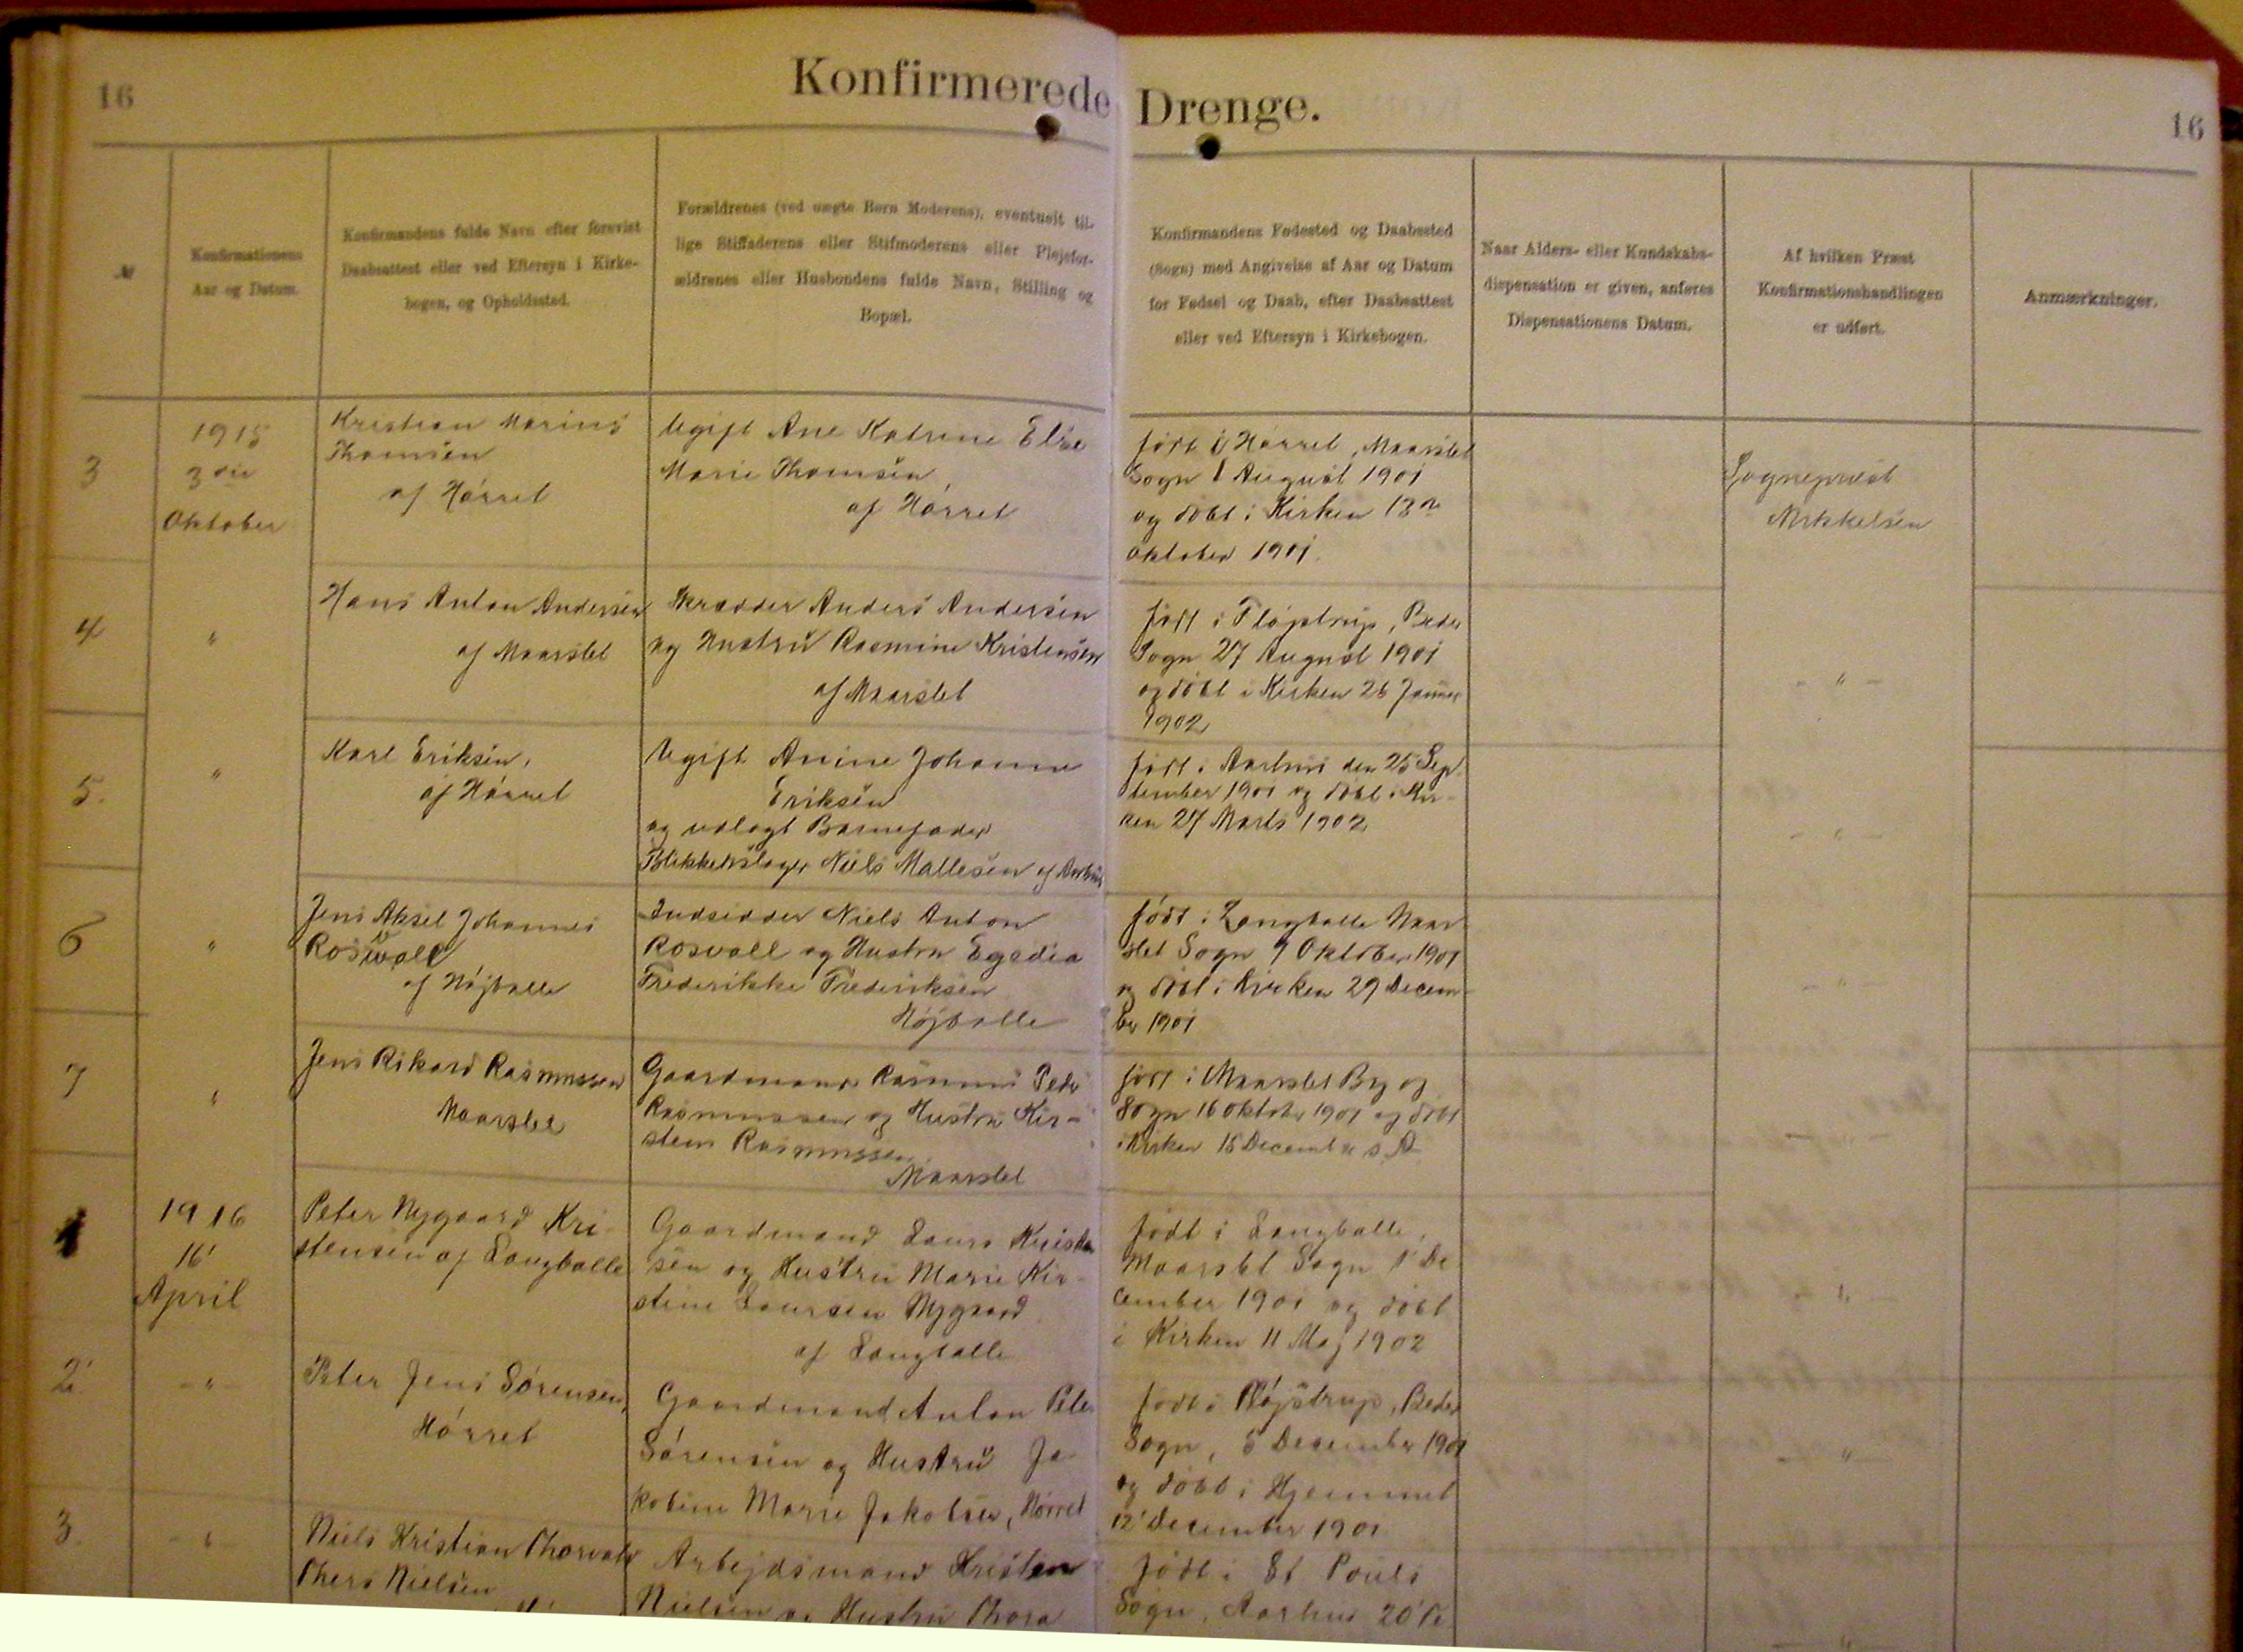 16
Konfirmerede Drenge.
16
№
Konfirmationens
Aar og Datum.
Konfirmandens fulde Navn efter forevist
Daabsattest eller ved Eftersyn i Kirke-
bogen, og Opholdssted.
Forældrenes (ved uægte Børn Moderens), eventuelt til-
lige Stiffaderens eller Stifmoderens eller Plejefor-
ældrenes eller Husbondens fulde Navn, Stilling og
Bopæl.
Konfirmandens Fødested og Daabssted
(Sogn) med Angivelse af Aar og Datum
for Fødsel og Daab, efter Daabsattest
eller ved Eftersyn i Kirkebogen.
Naar Alders- eller Kundskabs-
dispensation er given, anføres
Dispensationens Datum.
Af hvilken Præst
Konfirmationshandlingen
er udført.
Anmærkninger.
3
1915
3die
Oktober
Kristian Marius
Thomsen
af Hørret
Ugift Ane Katrine Else
Marie Thomsen
af Hørret
født i Hørret, Maarslet
Sogn 1 August 1901
og døbt i Kirken 13de
Oktober 1901.
Sognepræst
Mikkelsen
4
"
Hans Anton Andersen
af Maarslet
Skrædder Anders Andersen
og Hustru Rasmine Kristensen
af Maarslet
født i Fløjstrup, Beder
Sogn 27 August 1901
og døbt i Kirken 26 Januar
1902
- " -
5.
"
Karl Eriksen,
af Hørret
Ugift Anine Johanne
Eriksen
og udlagt Barnefader
Blikkenslager Niels Mallesen af Aarhus
født i Aarhus den 25 Sep-
tember 1901 og døbt i Kir-
ken 27 Marts 1902
- " -
6
"
Jens Aksel Johannes
Rosvall
af Højballe
Indsidder Niels Anton
Rosvall og Hustru Egedia
Frederikke Frederiksen
Højballe
født i Langballe Maar-
slet Sogn 9 Oktober 1901
og døbt i Kirken 29 Decem-
ber 1901
- " -
7
"
Jens Rikard Rasmussen
Maarslet
Gaardmand Rasmus Peder
Rasmussen og Hustru Kir-
stem Rasmussen
Maarslet
født i Maarslet By og
Sogn 16 Oktober 1901 og døbt
i Kirken 15 December s. A.
- " -
1
1916
16'
April
Peter Nygaard Kri-
stensen af Langballe
Gaardmand Laurs Kristen
sen og Hustru Marie Kir-
stine Laursen Nygaard
af Langballe
født i Langballe,
Maarslet Sogn 1' De
cember 1901 og døbt
i Kirken 11 Maj 1902
- " -
2'
- " -
Peter Jens Sørensen,
Hørret
Gaardmand Anton Peter
Sørensen og Hustru Ja-
kobine Marie Jakobsen, Hørret
født i Fløjstrup, Beder
Sogn, 5 December 1901
og døbt i Hjemmet
12' December 1901
- " -
3.
- "
Niels Kristian Thorvald
Thers Nielsen
Arbejdsmand Kristen
Nielsen og Hustru Thora
født i St Pouls
Sogn, Aarhus 20' De
- " -